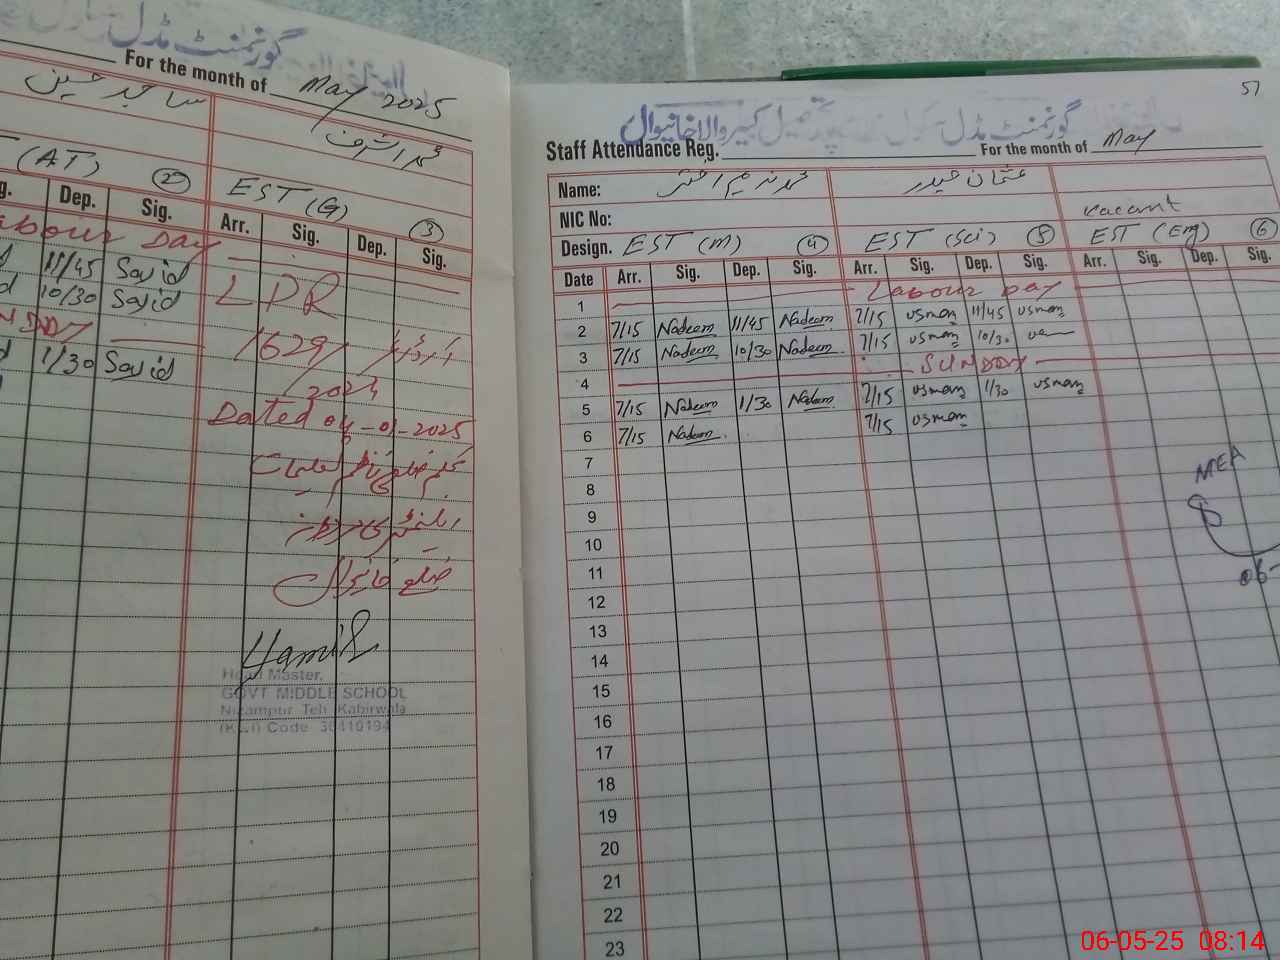 گورنمنٹ مڈل
For the month of May 2025
ساجد حسین
محمد اشرف
(AT) 2
EST (G) 3
Dep. Sig.
Arr. Sig. Dep. Sig.
Labour Day
11/45 Sajid
10/30 Sajid
1/30 Sajid
LPR
1629/
/2024
Dated 04-01-2025
ضلع خانیوال
Hamid
Head Master,
GOVT MIDDLE SCHOOL
Nizampur Teh Kabirwala
(KWL) Code 36410194
57
گورنمنٹ مڈل سکول تحصیل کبیر والا خانیوال
Staff Attendance Reg. For the month of May
Name: محمد ندیم اختر عثمان حیدر
NIC No: vacant
Design. EST (M) 4 EST (Sci) 5 EST (Eng) 6
Date Arr. Sig. Dep. Sig. Arr. Sig. Dep. Sig. Arr. Sig. Dep. Sig.
1 Labour Day
2 7/15 Nadeem 11/45 Nadeem 7/15 usman 11/45 usman
3 7/15 Nadeem 10/30 Nadeem 7/15 usman 10/30
4 SUNDAY
5 7/15 Nadeem 1/30 Nadeem 7/15 usman 1/30 usman
6 7/15 Nadeem 7/15 usman
7
8
9
10
11
12
13
14
15
16
17
18
19
20
21
22
23
MEA
06-
06-05-25 08:14